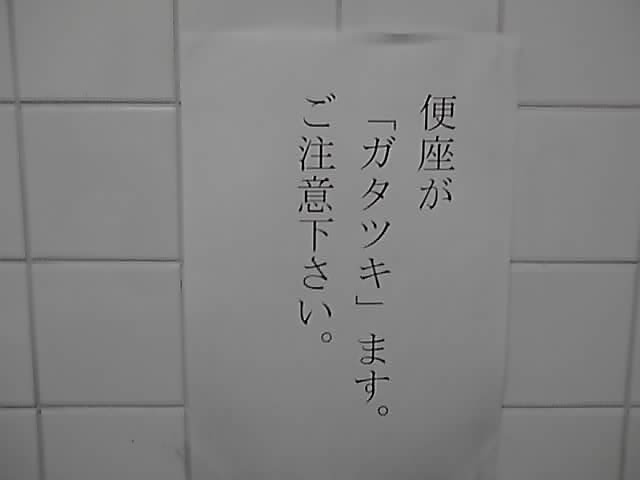 便座が
「ガタツキ」ます。
ご注意下さい。